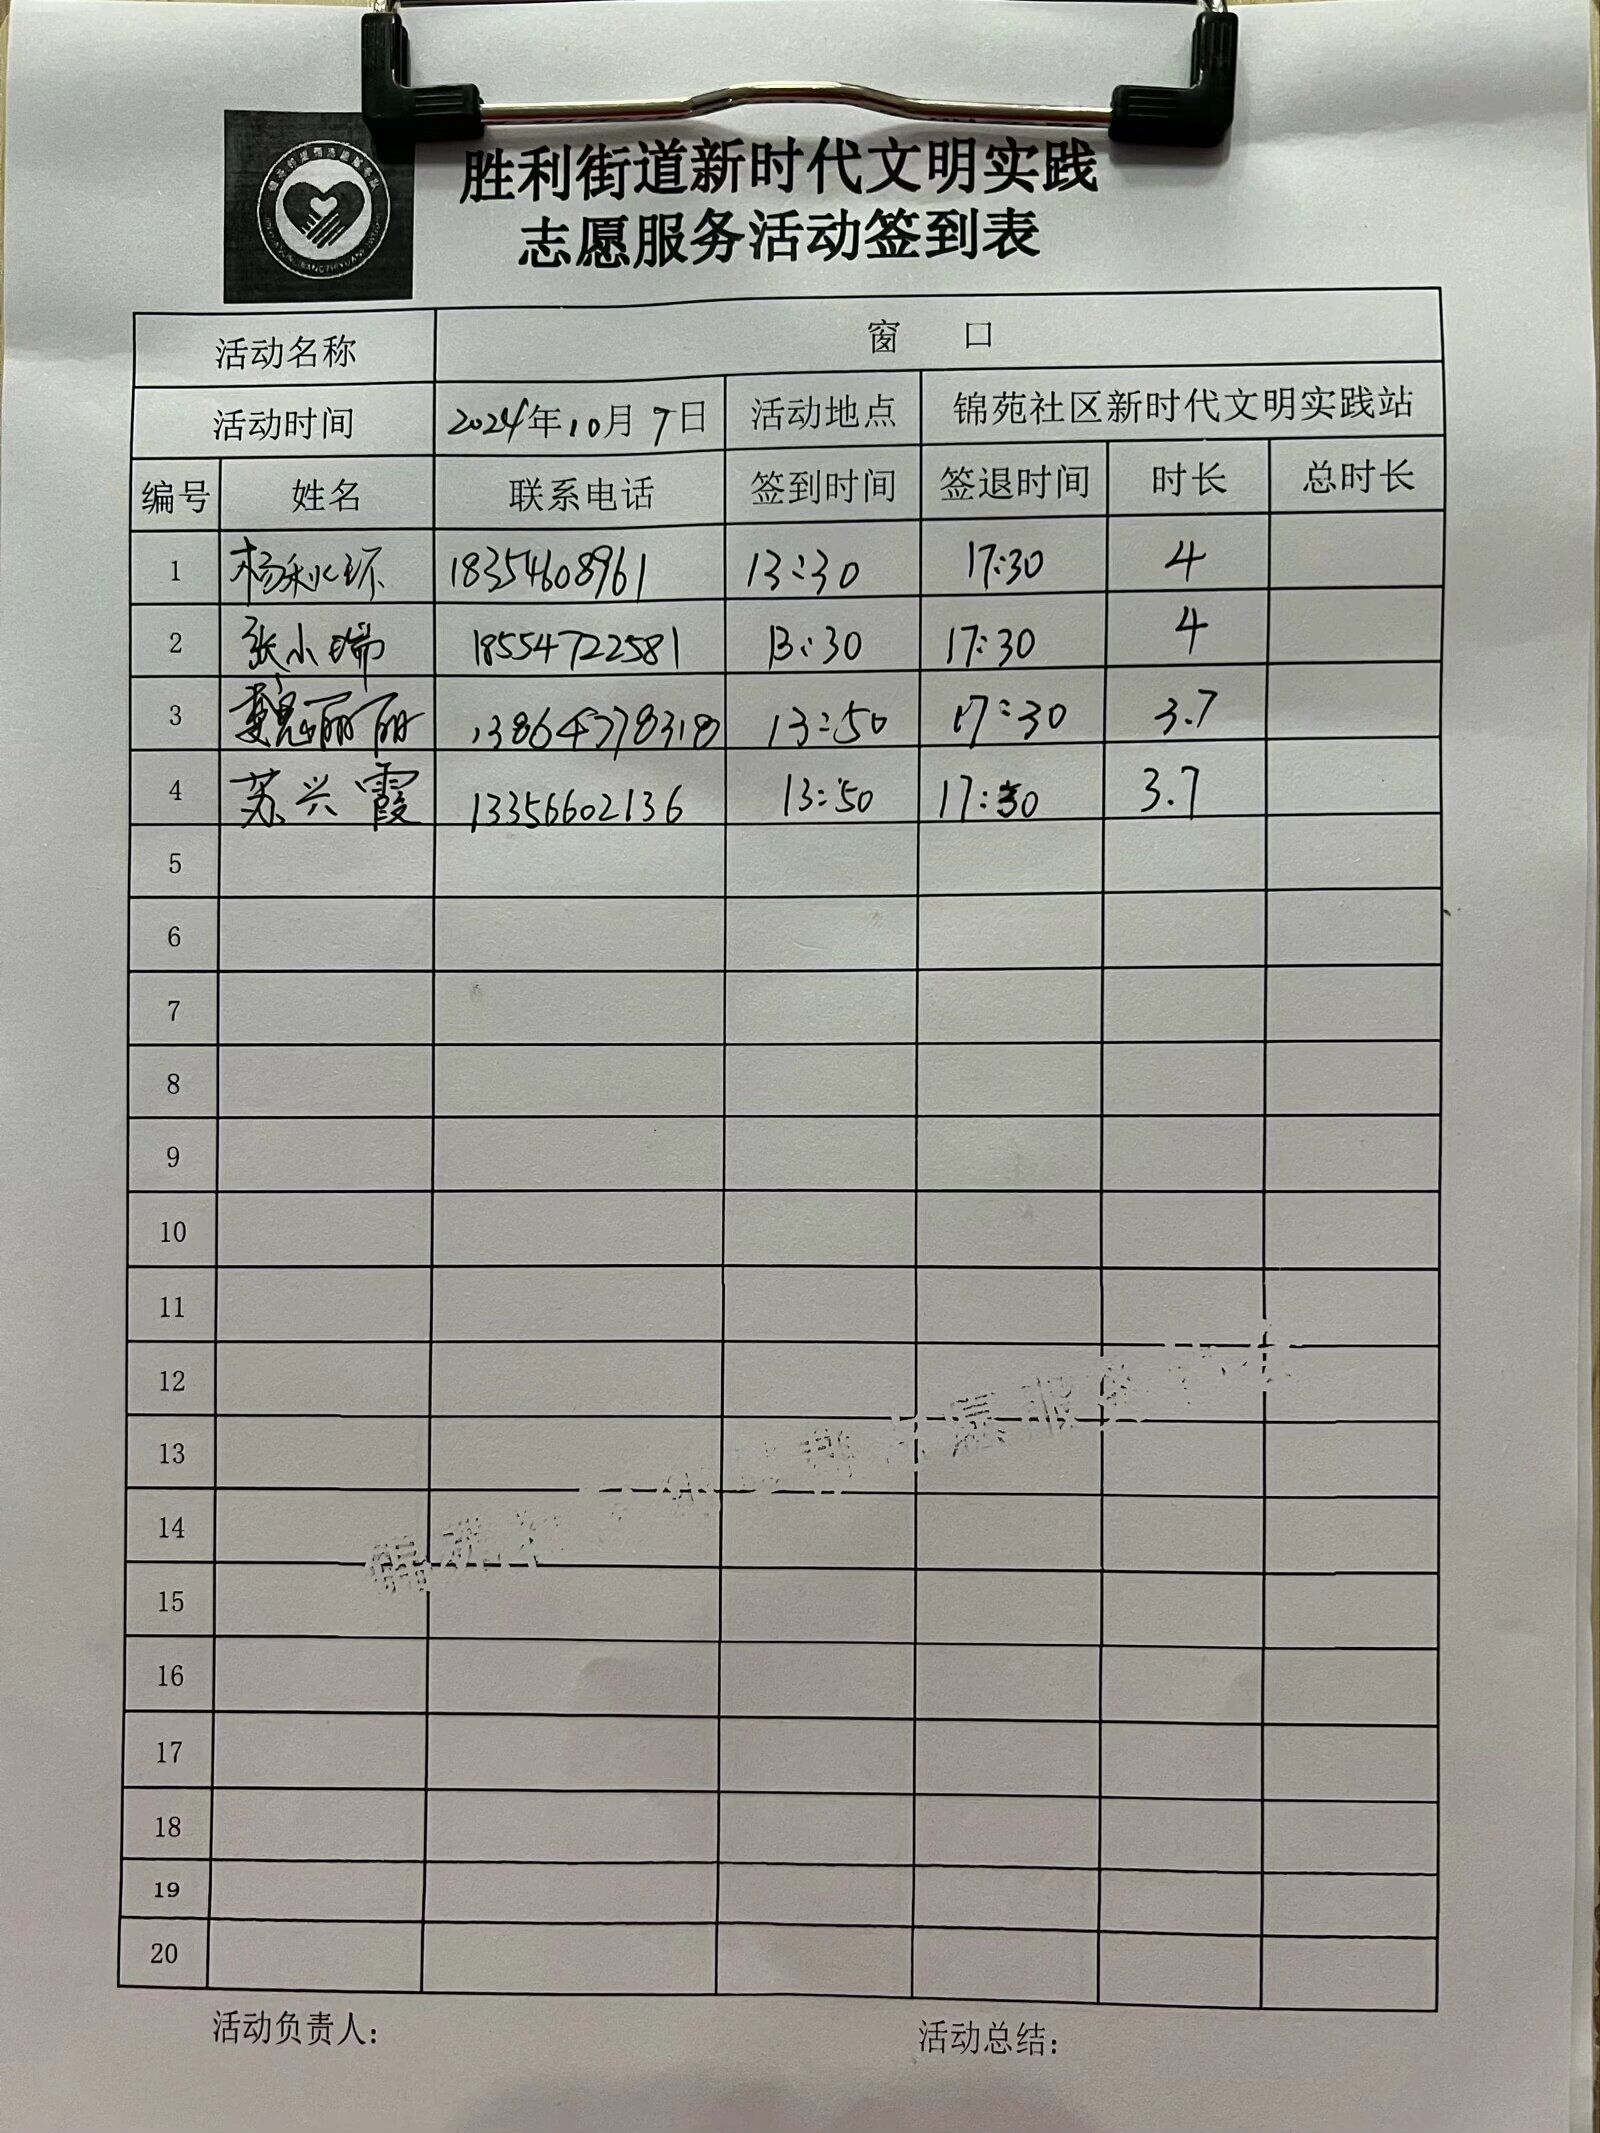 胜利街道新时代文明实践
志愿服务活动签到表
活动名称 窗 口
活动时间 2024年10月9日 活动地点 锦苑社区新时代文明实践站
编号 姓名 联系电话 签到时间 签退时间 时长 总时长
1 杨利环 18354608961 13:30 17:30 4
2 张小瑞 18554722581 13:30 17:30 4
3 魏丽丽 13864778318 13:50 17:30 3.7
4 苏兴霞 13356602136 13:50 17:30 3.7
5
6
7
8
9
10
11
12
13
14
15
16
17
18
19
20
活动负责人: 活动总结: